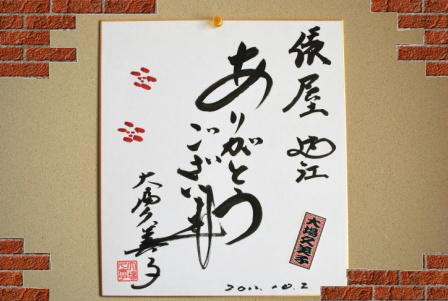 俵屋 㐂江
ありがとう
ござい升
大場久美子
大場久美子
2011.10.2